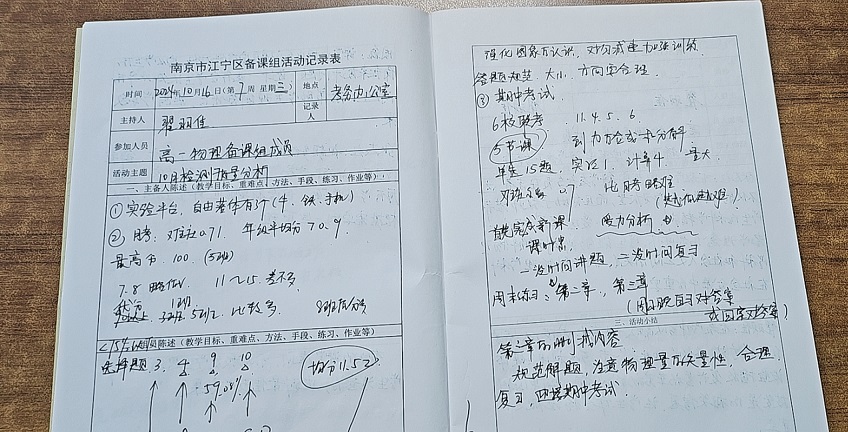 南京市江宁区备课组活动记录表
时间 2024年10月16日(第7周 星期三) 地点 考务办公室
主持人 记录人
参加人员 高一物理备课组成员
活动主题 10月检测质量分析
一、主备人陈述(教学目标、重难点、方法、手段、练习、作业等):
①实验平台,自由落体有3个(牛、铁、手机)
②月考:对班0.71. 年级平均分70.9.
最高分:100.(5班)
7.8 略低 11~15.差不多
1班
3班 5班 比较多
陈述(教学目标、重难点、方法、手段、练习、作业等)
选择题 3. 4 9 10
59.08%
均分11.52
强化图象的认识,对匀减速加强训练
答题规范.大小、方向要合理.
③期中考试.
6校联考. 11.4.5.6
5节课 到力的合成和分解
单选15题,实验1,计算4 量大
0.7 比月考略难
首先完成新课 受力分析
课时紧
一没时间讲题,二没时间复习
周末练习:第二章,第三章
三、活动小结
第三章的删减内容
规范解题,注意物理量的矢量性,合理
复习,迎接期中考试.